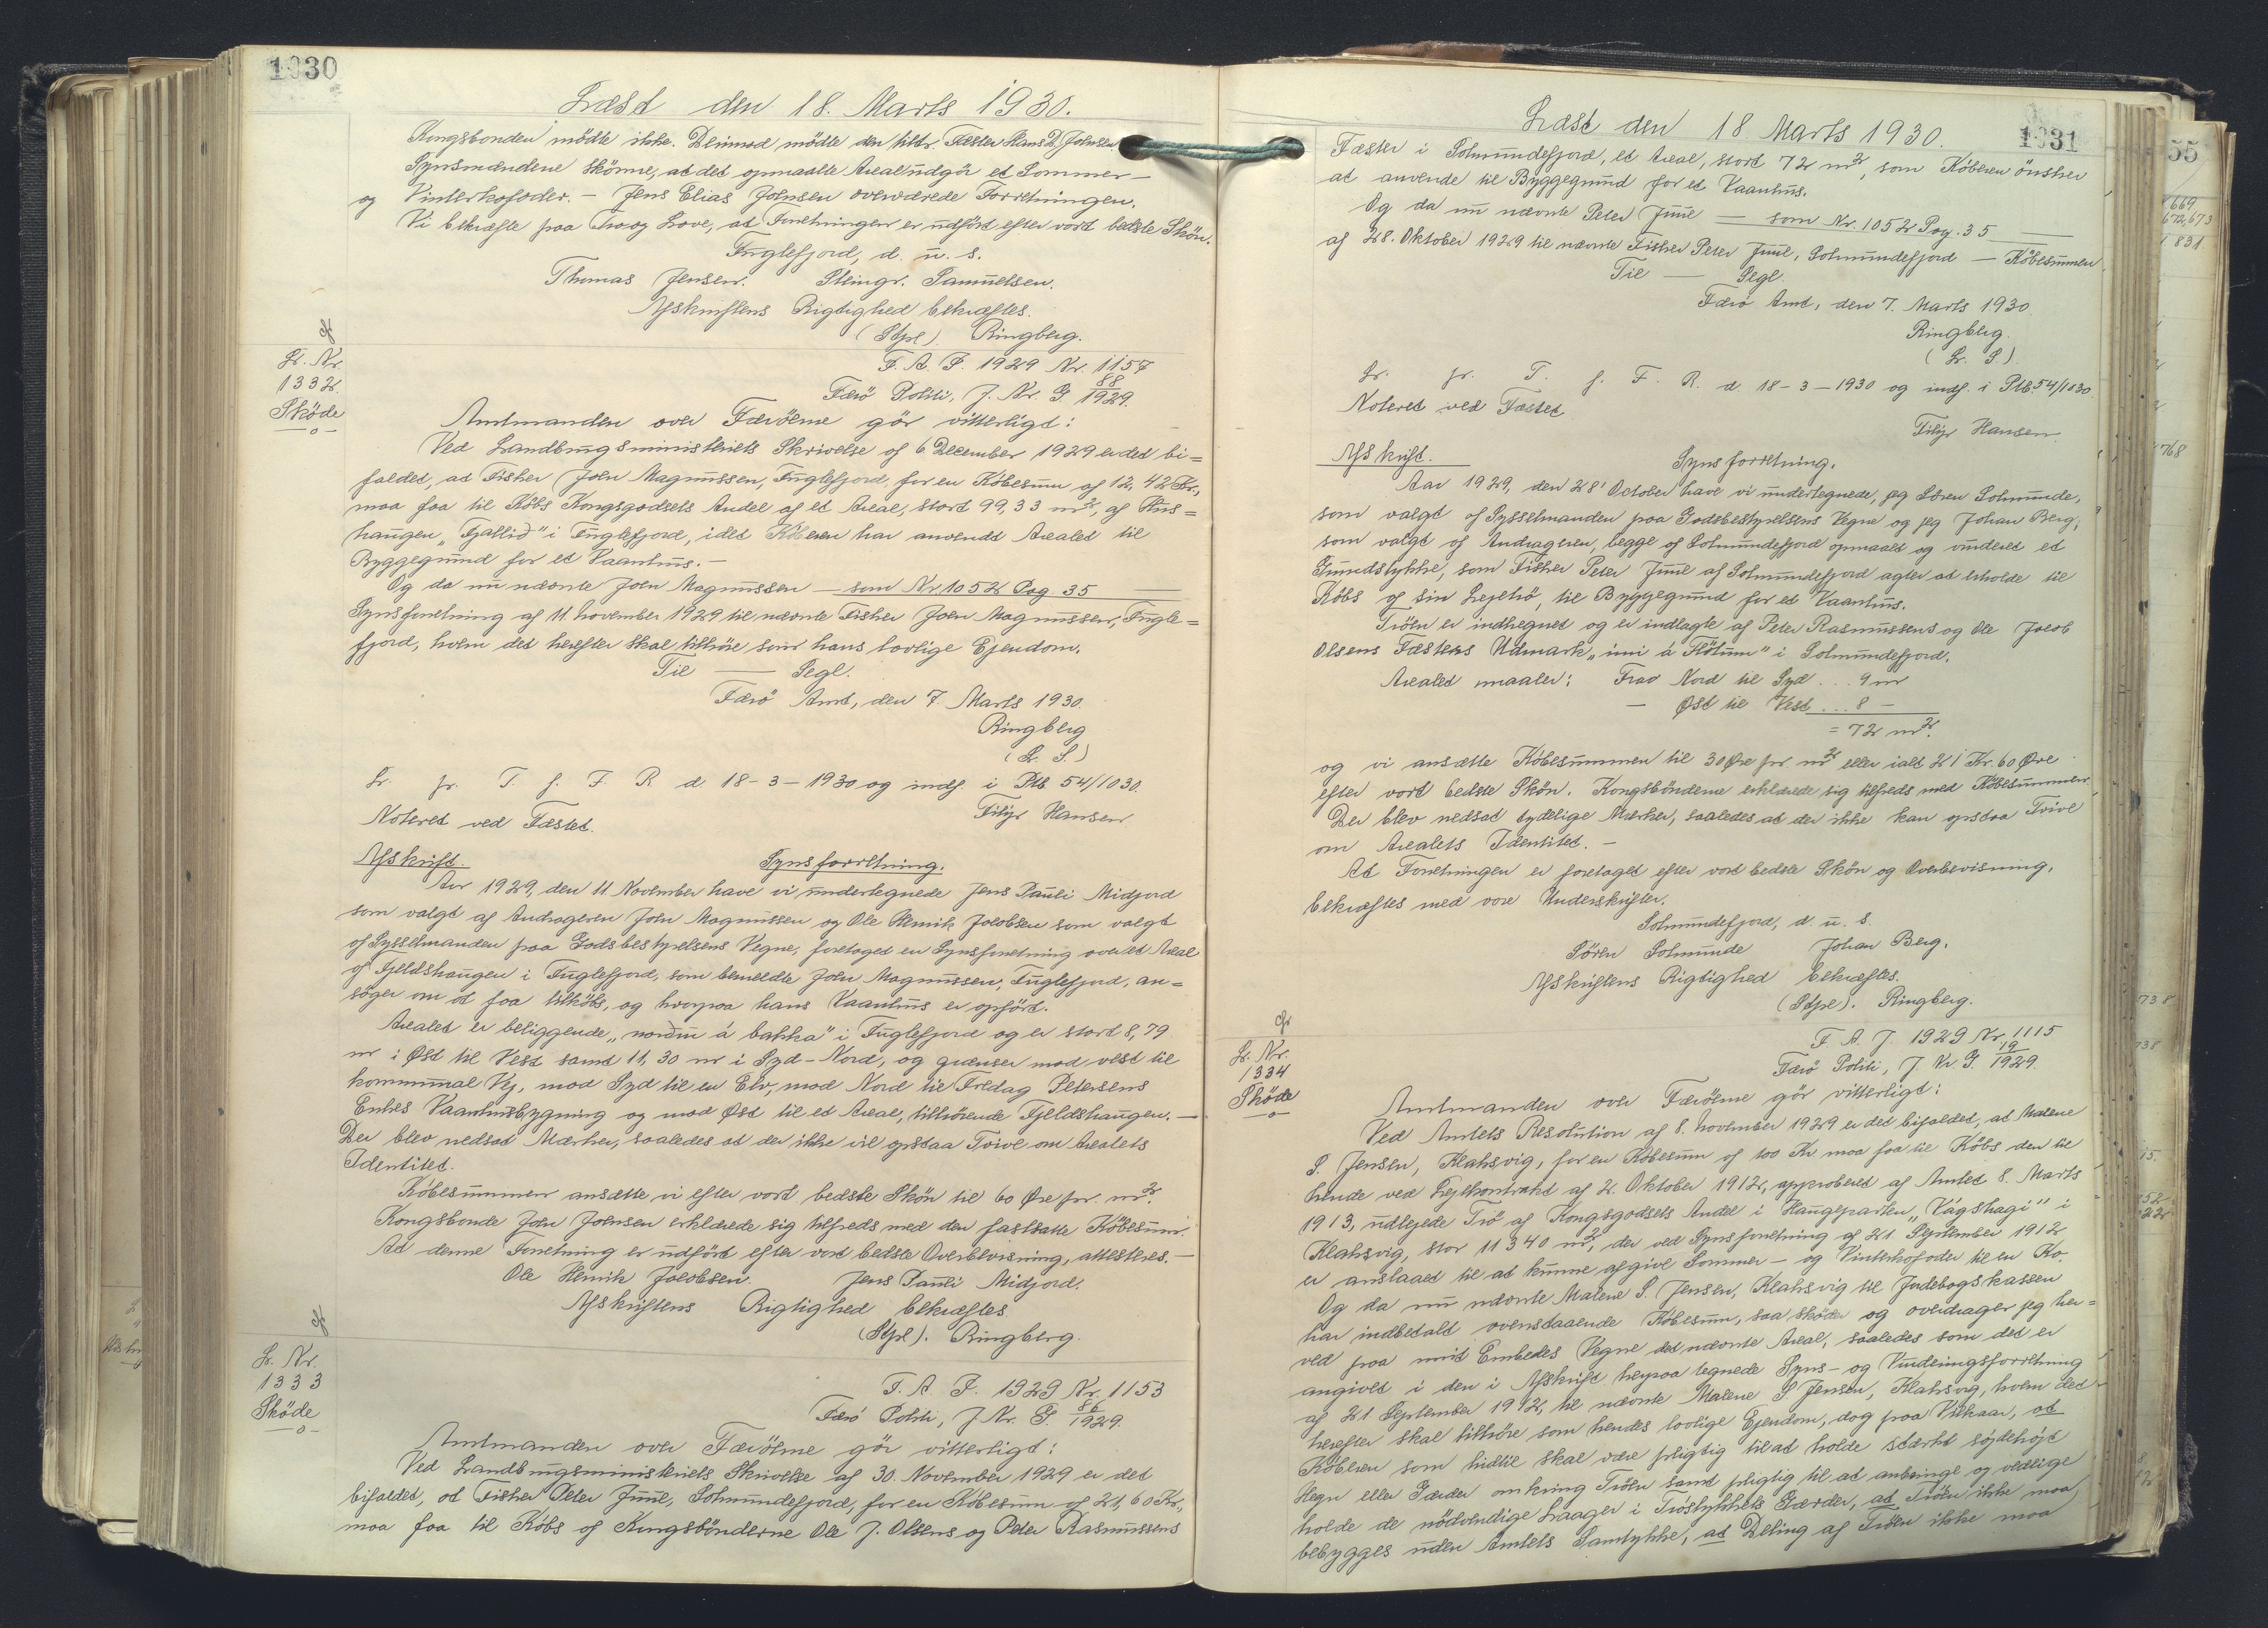 1030
Læst den 18. Marts 1930.
Kongsbonden mödte ikke. Derimod mödte den tidlr. Fæster Hans D. Johnsen
Synsmændene skönne, at det opmaalte Areal udgör et Sommer-
og Vinterkofoder. - Jens Elias Johnsen overværede Forretningen.
Vi bekræfte paa Tro og Love, at Forretningen er udfört efter vort bedste Skön.
Fuglefjord, d. u. s.
Thomas Jensen. Steingr. Samuelsen.
Afskriftens Rigtighed bekræftes.
(Stpl). Ringberg.
L. Nr.
1332.
Sköde
F. A. J. 1929 Nr. 1157
Færö Politi, J. Nr. G 88/1929.
Amtmanden over Færöerne gör vitterligt:
Ved Landbrugsministeriets Skrivelse af 6 December 1929 er det bi=
faldet, at Fisker Joen Magnussen, Fuglefjord, for en Köbesum af 12,42 Kr.,
maa faa til Köbs Kongsgodsets Andel af et Areal, stort 99,33 m², af Hus=
haugen „Fjallið" i Fuglefjord, idet Köberen har anvendt Arealet til
Byggegrund for et Vaanhus. -
Og da nu nævnte Joen Magnussen — som Nr. 1052 Pag. 35 —
Synsforretning af 11. November 1929 til nævnte Fisker Joen Magnussen, Fugle=
fjord, hvem det herefter skal tilhöre som hans lovlige Ejendom.
Til — Segl.
Færö Amt, den 7. Marts 1930.
Ringberg
(L. S.)
L. fr. T. f. F. R. d. 18-3-1930 og indf. i Ptb. 54/1030.
Noteret ved Fæstet.
Filip Hansen
Afskrift. Synsforretning.
Aar 1929, den 11 November have vi undertegnede Jens Pauli Midjord
som valgt af Andrageren Joen Magnussen og Ole Henrik Jacobsen som valgt
af Sysselmanden paa Godsbestyrelsens Vegne, foretaget en Synsforretning over et Areal
af Fjeldshaugen i Fuglefjord, som bemeldte Joen Magnussen, Fuglefjord, an=
söger om at faa tilköbs, og hvorpaa hans Vaanhus er opfört.
Arealet er beliggende „norðu á bakka" i Fuglefjord og er stort 8,79
m i Øst til Vest samt 11,30 m i Syd-Nord, og grænser mod vest til
kommunal Vej, mod Syd til en Elv, mod Nord til Fredag Petersens
Enkes Vaanhusbygning og mod Øst til et Areal, tilhörende Fjeldshaugen. -
Der blev nedsat Mærker, saaledes at der ikke vil opstaa Tvivl om Arealets
Identitet.
Köbesummen ansætte vi efter vort bedste Skön til 60 Øre pr. m².
Kongsbonde Joen Joensen erklærede sig tilfreds med den fastsatte Köbesum.
At denne Forretning er udfört efter vort bedste Overbevisning, attesteres. -
Ole Henrik Jacobsen. Jens Pauli Midjord.
Afskriftens Rigtighed bekræftes
(Stpl). Ringberg.
L. Nr.
1333
Sköde
F. A. J. 1929 Nr. 1153
Færö Politi, J. Nr. G. 86/1929.
Amtmanden over Færöerne gör vitterligt:
Ved Landbrugsministeriets Skrivelse af 30. November 1929 er det
bifaldet, at Fisker Peter Juul, Solmundefjord, for en Köbesum af 21,60 Kr.,
maa faa til Köbs af Kongsbönderne Ole J. Olsens og Peter Rasmussens
1031
Læst den 18. Marts 1930.
Fæster i Solmundefjord, et Areal, stort 72 m², som Köberen önsker
at anvende til Byggegrund for et Vaanhus.
Og da nu nævnte Peter Juul — som Nr. 1052 Pag. 35 —
af 28. Oktober 1929 til nævnte Fisker Peter Juul, Solmundefjord — Köbesummen
Til — Segl
Færö Amt, den 7. Marts 1930.
Ringberg.
(L. S.)
L. fr. T. f. F. R. d. 18-3-1930 og indf. i Ptb. 54/1030
Noteret ved Fæstet
Filip Hansen.
Afskrift. Synsforretning.
Aar 1929, den 28' October have vi undertegnede, jeg Sören Solmunde,
som valgt af Sysselmanden paa Godsbestyrelsens Vegne og jeg Johan Berg,
som valgt af Andrageren, begge af Solmundefjord opmaalt og vurderet et
Grundstykke, som Fisker Peter Juul af Solmundefjord agter at erholde til
Köbs af sin Lejetrö, til Byggegrund for et Vaanhus.
Tröen er indhegnet og er indlagte af Peter Rasmussens og Ole Jacob
Olsens Fæsters Udmark „inni á Fløtum" i Solmundefjord.
Arealet maaler: Fra Nord til Syd ... 9 m
— Øst til Vest ... 8 -
= 72 m².
og vi ansætte Köbesummen til 30 Øre pr. m² eller ialt 21 Kr. 60 Øre
efter vort bedste Skön. Kongsbönderne erklærede sig tilfreds med Köbesummen.
Der blev nedsat tydelige Mærker, saaledes at der ikke kan opstaa Tvivl
om Arealets Identitet. -
At Forretningen er foretaget efter vort bedste Skön og Overbevisning,
bekræftes med vore Underskrifter.
Solmundefjord, d. u. s.
Sören Solmunde Johan Berg.
Afskriftens Rigtighed bekræftes.
(Stpl). Ringberg.
L. Nr.
1334
Sköde
F. A. J. 1929 Nr. 1115
Færö Politi, J. Nr. G. 19/1929.
Amtmanden over Færöerne gör vitterligt:
Ved Amtets Resolution af 8. November 1929 er det bifaldet, at Malene
S. Jensen, Klaksvig, for en Köbesum af 100 Kr. maa faa til Köbs den til
hende ved Lejekontrakt af 2. Oktober 1912, approberet af Amtet 8. Marts
1913, udlejede Trö af Kongsgodsets Andel i Haugeparten „Vágshagi" i
Klaksvig, stor 11340 m², der ved Synsforretning af 21 September 1912
er anslaaet til at kunne afgive Sommer- og Vinterkofoder til en Ko.
Og da nu nævnte Malene S. Jensen, Klaksvig til Jordebogskassen
har indbetalt ovenstaaende Köbesum, saa sköder og overdrager jeg her=
ved paa mit Embedes Vegne det nævnte Areal, saaledes som det er
angivet i den i Afskrift herpaa tegnede Syns- og Vurderingsforretning
af 21 September 1912, til nævnte Malene S Jensen, Klaksvig, hvem det
herefter skal tilhöre som hendes lovlige Ejendom, dog paa Vilkaar, at
Köberen som hidtil skal være pligtig til at holde stærkt söjdehöjt
Hegn eller Gærder omkring Tröen samt pligtig til at anbringe og vedlige
holde de nödvendige Laager i Tröstykkets Gærder, at Tröen ikke maa
bebygges uden Amtets Samtykke, at Deling af Tröen ikke maa
55
669
672,673
831
768
738
738
15.